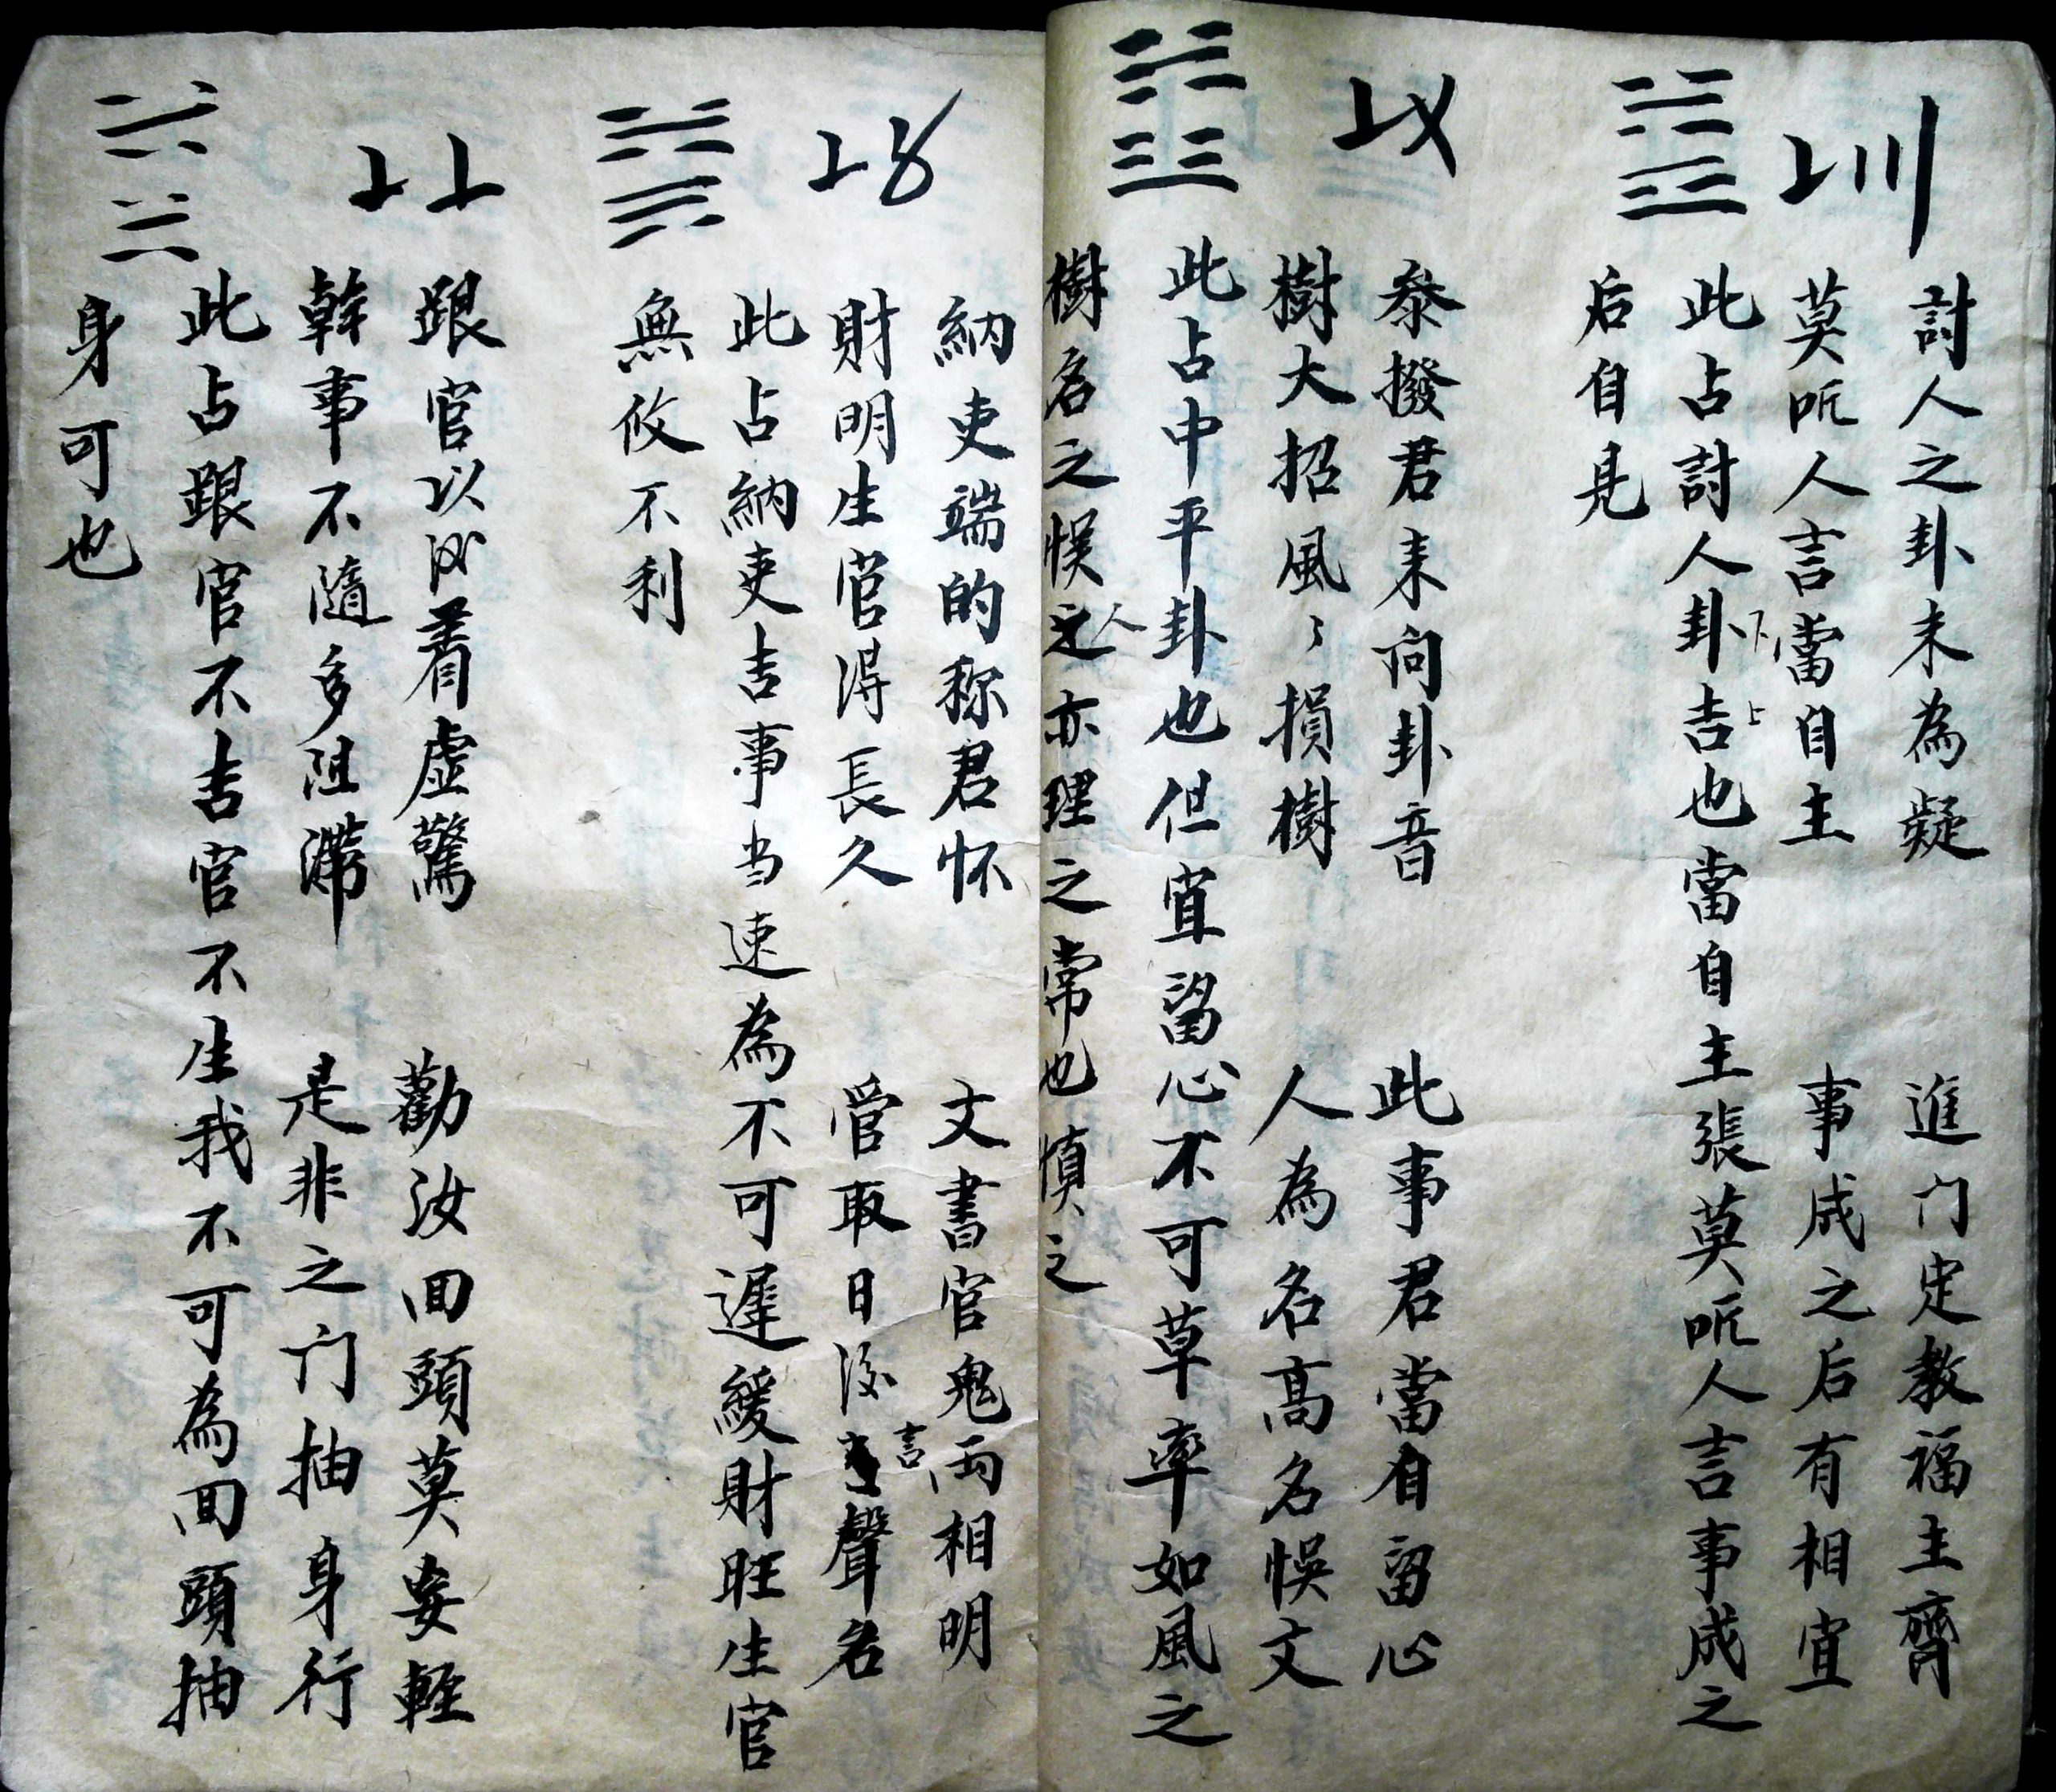 〦〣
討人之卦未為疑　進门定教福主齊
莫听人言當自主　事成之后有相宜
此占討人卦吉也當自主張莫听人言事成之
下
上
后自見
〦〤
泰撥君来向卦音　此事君當自留心
樹大招風々損樹　人為名高名悞文
此占中平卦也但宜留心不可草率如風之
樹名之悞之亦理之常也慎之
人
〦〥
納吏端的称君怀　文書官鬼両相明
財明生官得長久　管取日後聲名
言
此占納吏吉事当速為不可遲緩財旺生官
無攸不利
〦〦
跟官以必着虚驚　勸汝回頭莫妄輕
幹事不隨多阻滯　是非之门抽身行
此占跟官不吉官不生我不可為回頭抽
身可也